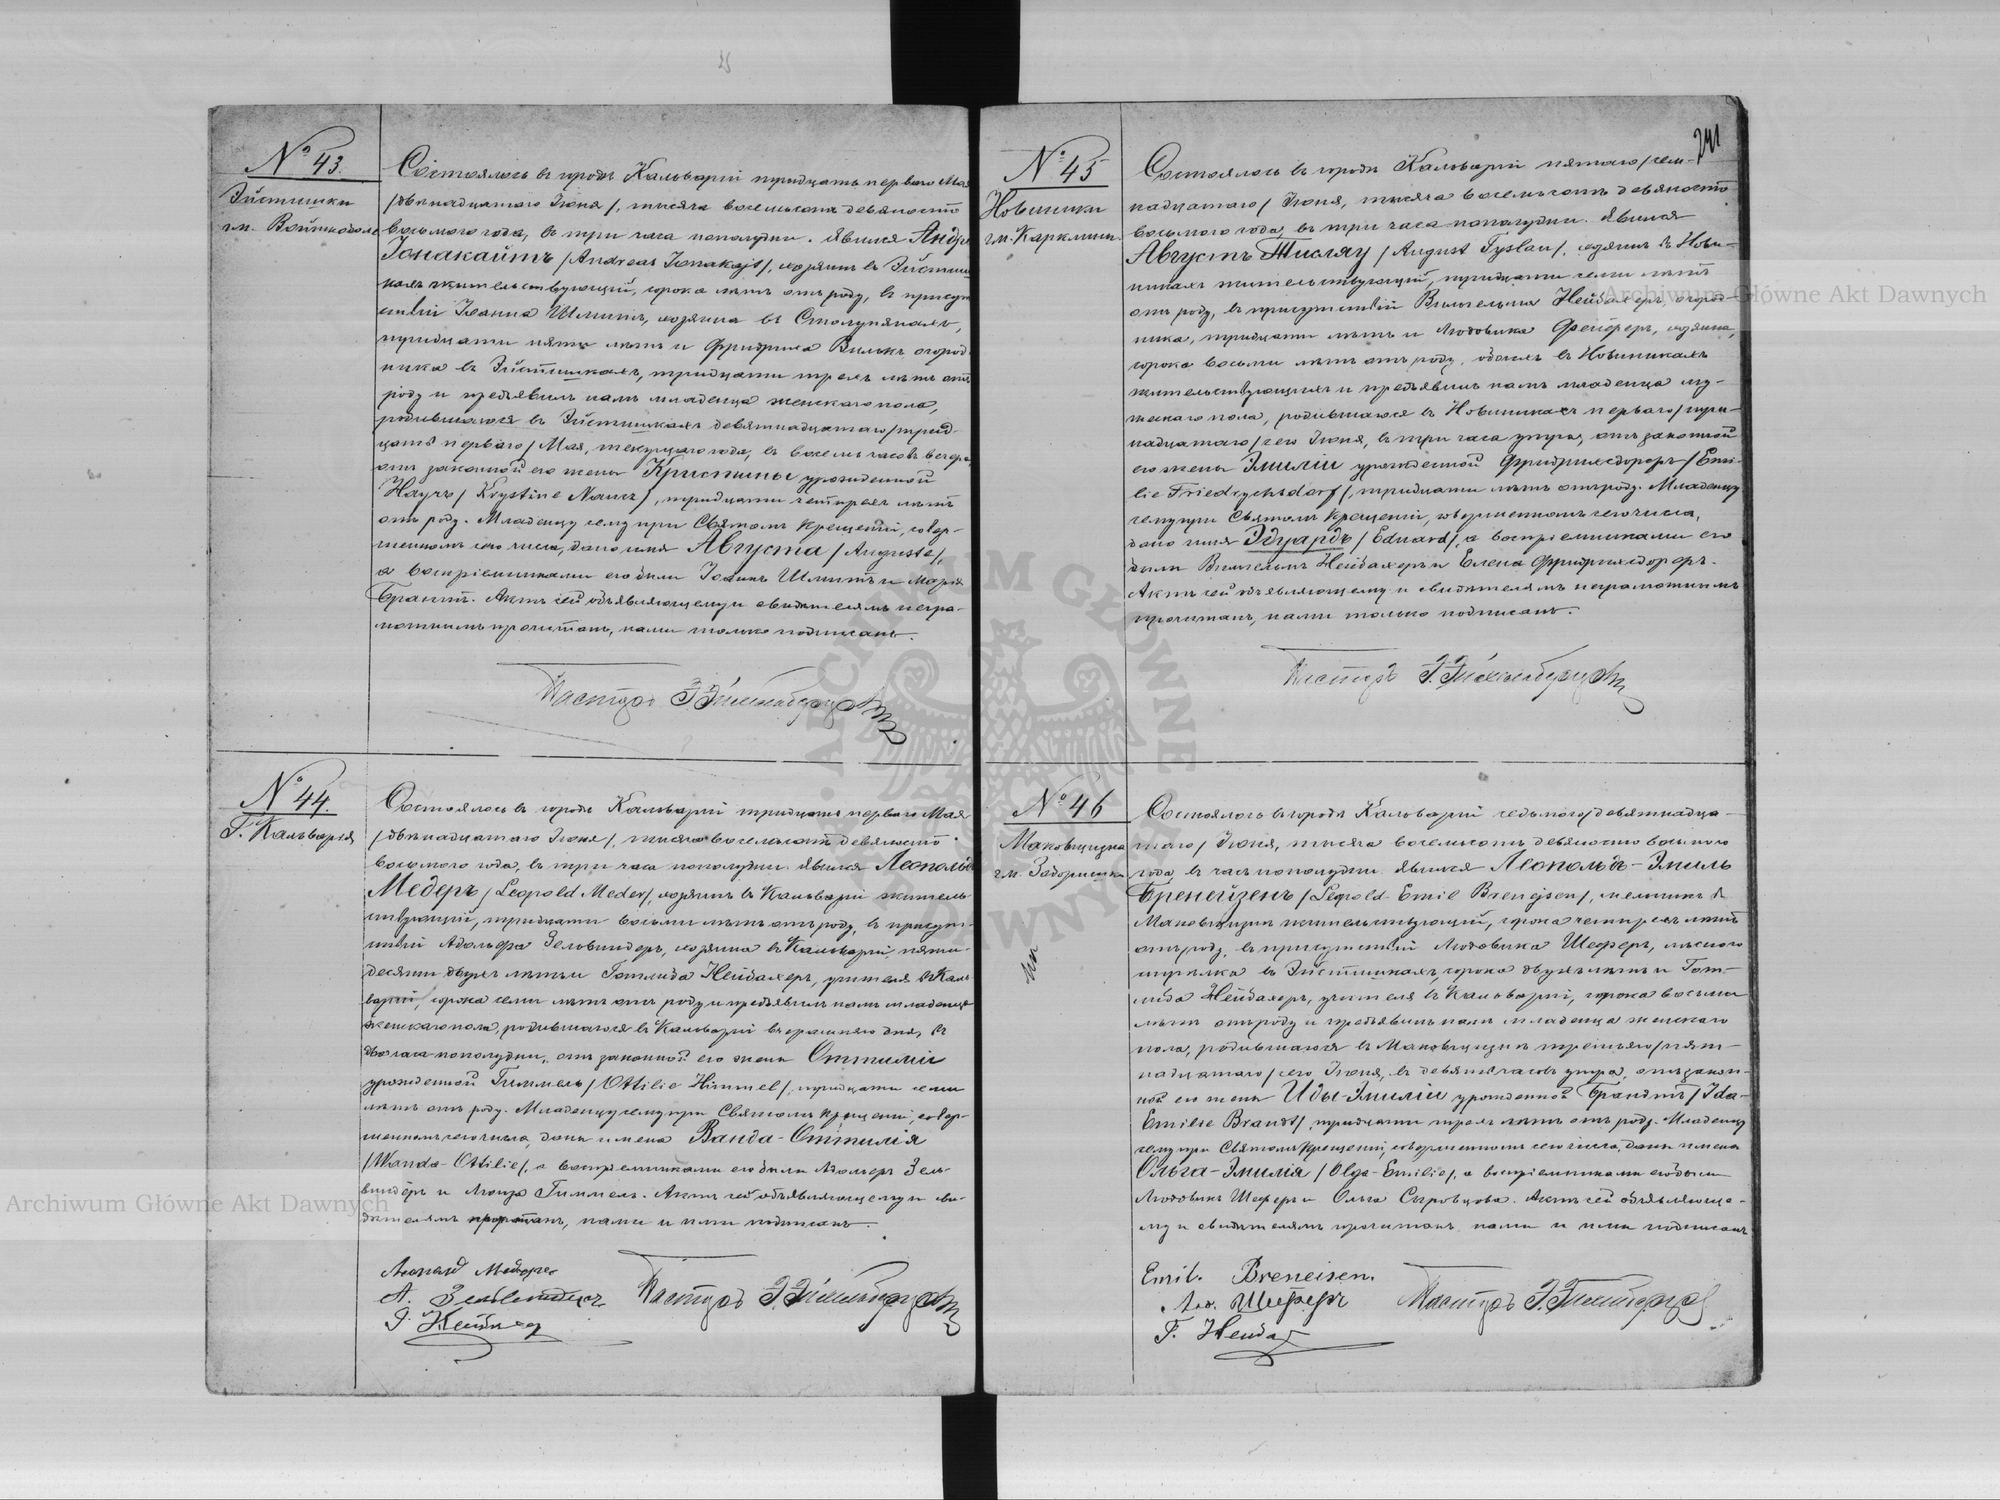 241
№ 43.
Эйстишки
гм. Войткоболе
Состоялось въ городѣ Кальваріи тридцать перваго Мая
/двѣнадцатаго Іюня/, тысяча восемьсотъ девяносто
восьмого года, въ три часа пополудни. Явился Андрей
Іонакайтъ /Andreas Jonakajt/, хозяинъ въ Эйстиш-
кахъ жительствующій, сорока лѣтъ отъ роду, въ присут-
ствіи Іоанна Шмитъ, хозяина въ
тридцати пяти лѣтъ и Фридриха Вилькъ огород-
ника въ Эйстишкахъ, тридцати трехъ лѣтъ отъ
роду и предъявилъ намъ младенца женскаго пола,
родившагося въ Эйстишкахъ девятнадцатаго/трид-
цать перваго/ Мая, текущаго года, въ восемь часовъ вечера,
отъ законной его жены Кристины урожденной
Научъ /Krystine Naucz/, тридцати четырехъ лѣтъ
отъ роду. Младенцу сему при Святомъ Крещеніи, совер-
шенномъ сего числа, дано имя Августа /Auguste/,
а воспріемниками его были Іоаннъ Шмитъ и Марія
Брантъ. Актъ сей объявляющему и свидѣтелямъ негра-
мотнымъ прочитанъ, нами только подписанъ.
Пасторъ
№ 44.
Г. Кальварія
Состоялось въ городѣ Кальваріи тридцать перваго Мая
/двѣнадцатаго Іюня/, тысяча восемьсотъ девяносто
восьмого года, въ три часа пополудни. Явился Леопольдъ
Медеръ /Leopold Meder/, хозяинъ въ Кальваріи житель-
ствующій, тридцати восьми лѣтъ отъ роду, въ присут-
ствіи Адольфа Зельвиндеръ, хозяина въ Кальваріи, пяти-
десяти двухъ лѣтъ и Готлиба Нейбахеръ, учителя въ Каль-
варіи, сорока семи лѣтъ отъ роду и предъявилъ намъ младенца
женскаго пола, родившагося въ Кальваріи вчерашняго дня, въ
два часа пополудни, отъ законной его жены Оттиліи
урожденной Гиммель /Ottilie Himmel/, тридцати семи
лѣтъ отъ роду. Младенцу сему при Святомъ Крещеніи, совер-
шенномъ сего числа, даны имена Ванда-Оттилія
/Wanda-Ottilie/, а воспріемниками его были Адольфъ Зель-
виндеръ и Луиза Гиммель. Актъ сей объявляющему и сви-
дѣтелямъ прочитанъ, нами и ими подписанъ.
Леопольд Медеръ
А. Зельвиндеръ
Г. Нейбахер
Пасторъ
№ 45
Новиники
гм. Карклины
Состоялось въ городѣ Кальваріи пятаго/сем-
надцатаго/ Іюня, тысяча восемьсотъ девяносто
восьмого года, въ три часа пополудни. Явился
Августъ Тысляу /August Tyslau/, хозяинъ въ Нови-
никахъ жительствующій, тридцати семи лѣтъ
отъ роду, въ присутствіи Вильгельма Нейбахеръ, огород-
ника, тридцати лѣтъ и Людовика Фейферъ, хозяина,
сорока восьми лѣтъ отъ роду, обоихъ въ Новиникахъ
жительствующихъ и предъявилъ намъ младенца му-
жескаго пола, родившагося въ Новиникахъ перваго/три-
надцатаго/ сего Іюня, въ три часа утра, отъ законной
его жены Эмиліи урожденной Фридрихсдорфъ /Emi-
lie Friedrychsdorf/, тридцати лѣтъ отъ роду. Младенцу
сему при Святомъ Крещеніи, совершенномъ сего числа,
дано имя Эдуардъ /Eduard/, а воспріемниками его
были Вильгельмъ Нейбахеръ и Елена Фридрихсдорфъ.
Актъ сей объявляющему и свидѣтелямъ неграмотнымъ
прочитанъ, нами только подписанъ.
Пасторъ
№ 46
Маковщизна
гм. Задоришки
Состоялось въ городѣ Кальваріи седьмого/девятнадца-
таго/ Іюня, тысяча восемьсотъ девяносто восьмого
года, въ часъ пополудни. Явился Леопольдъ-Эмиль
Бренейзенъ /Leopold-Emil Brenejsen/, мельникъ въ
Маковщизнѣ жительствующій, сорока четырехъ лѣтъ
отъ роду, въ присутствіи Людовика Шеферъ, лѣсного
въ Эйстишкахъ, сорока двухъ лѣтъ и Гот-
либа Нейбахеръ, учителя въ Кальваріи, сорока восьми
лѣтъ отъ роду и предъявилъ намъ младенца женскаго
пола, родившагося въ Маковщизнѣ третьяго/пят-
надцатаго/ сего Іюня, въ девять часовъ утра, отъ закон-
ной его жены Иды-Эмиліи урожденной Брандтъ /Ida-
Emilie Brandt/, тридцати трехъ лѣтъ отъ роду. Младенцу
сему при Святомъ Крещеніи, совершенномъ сего числа, даны имена
Ольга-Эмилія /Olga-Emilie/, а воспріемниками его были
Людовикъ Шеферъ и Ольга Сыровцова. Актъ сей объявляюще-
му и свидѣтелямъ прочитанъ, нами и ими подписанъ
Emil. Breneisen.
Лю. Шеферъ
Г. Нейбах
Пасторъ
Archiwum Główne Akt Dawnych
Archiwum Główne Akt Dawnych
ARCHIWUM GŁÓWNE AKT DAWNYCH